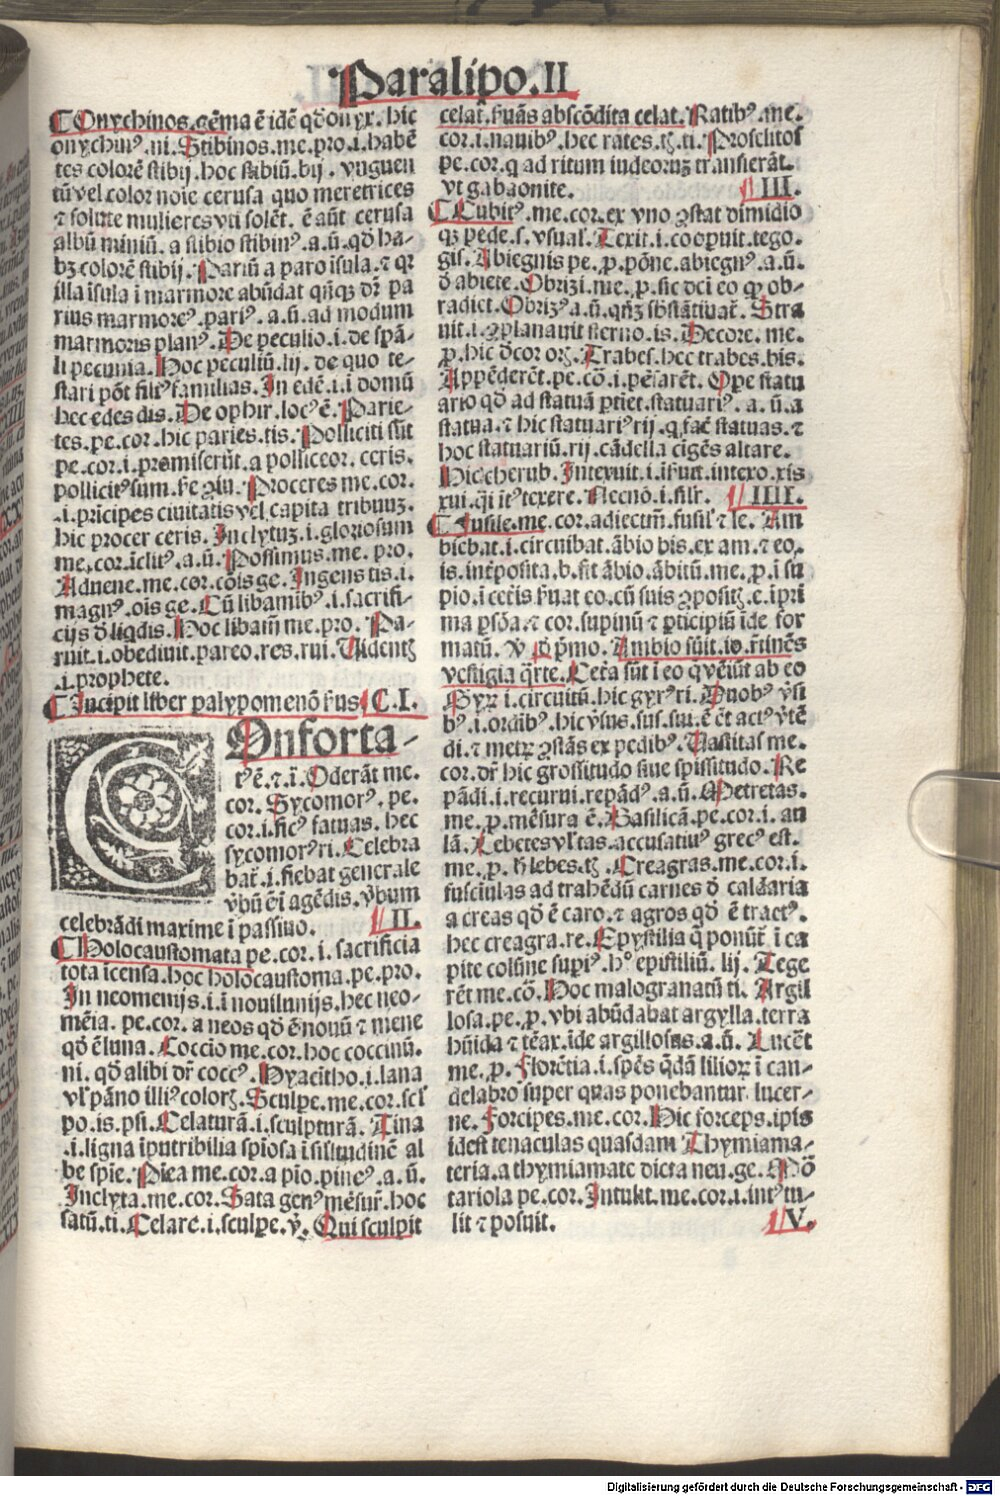 Paralipo. II
¶ Onychinos. gēma ē idē qđ onyx. hic
onychinꝰ. ni. Stibinos. me. pro. i. habē
tes colorē stibij. hoc stibiū. bij. vnguen
tū vel color noīe cerusa quo meretrices
⁊ solute mulieres vti solēt. ē aūt cerusa
albū miniū. a stibio stibinꝰ. a. ū. qđ ha-
bꝫ colorē stibij. Pariū a paro īsula. ⁊ qꝛ
illa īsula ī marmore abūdat qñqꝫ dꝛ pa
rius marmoreꝰ. pariꝰ. a. ū. ad modum
marmoris planꝰ. De peculio. i. de spā-
li pecunia. Hoc peculiū. lij. de quo te-
stari pōt filiꝰ familias. In edē. i. ī domū
hec edes dis. De ophir. locꝰ ē. Parie-
tes. pe. cor. hic paries. tis. Polliciti sūt
pe. cor. i. promiserūt. a polliceor. ceris.
pollicitꝰ sum. Proceres me. cor.
.i. prīcipes ciuitatis vel capita tribuuꝫ.
hic procer ceris. Inclytuꝫ. i. gloriosum
me. cor. īclitꝰ. a. ū. Possimus. me. pro.
Aduene. me. cor. cōis ge. Ingens tis. i.
magnꝰ. ois ge. Cū libamībꝰ. i. sacrifi-
cijs đ liqdis. Hoc libamē me. pro. Pa-
ruit. i. obediuit. pareo. res. rui. Uidentꝭ
.i. prophete.
¶ Incipit liber palypomenō C. I.
COnforta-
tꝰ ē. ⁊. ī. Oderāt me.
cor. Sycomorꝰ. pe.
cor. i. ficꝰ fatuas. hec
sycomorꝰ ri. Celebra
bat̄. i. fiebat generale
v̄bū ē ī agēdis. v̄bum
celebrādi maxime ī passiuo. II.
¶ Holocaustomata pe. cor. i. sacrificia
tota īcensa. hoc holocaustoma. pe. pro.
In neomenijs. i. ī nouilunijs. hec neo-
mēia. pe. cor. a neos qđ ē nouū ⁊ mene
qđ ē luna. Coccio me. cor. hoc coccinū.
ni. qđ alibi dꝛ coccꝰ. Hyacītho. i. lana
vl' pāno illiꝰ colorꝭ. Sculpe. me. cor. scl'
po. is. psi. Celaturā. i. sculpturā. Tina
.i. ligna īputribilia spiosa ī silitudinē al
be spie. Picea me. cor. a pīo. pineꝰ. a. ū.
Inclyta. me. cor. Sata genꝰ mēsuꝝ. hoc
satū. ti. Celare. i. sculpe. v̄. Qui sculpit
celat. abscōdita celat. Ratibꝰ. me.
cor. i. nauibꝰ. hec rates. tꝭ. ti. Proselitos
pe. cor. q ad ritum iudeoruꝫ transierāt.
vt gabaonite. III.
¶ Cubitꝰ. me. cor. ex vno ꝯstat dimidio
qꝫ pede. s. vsual'. Texit. i. cooperuit. tego.
gis. Abiegnis pe. ꝑ. pōne. abiegnꝰ. a. ū.
đ abiete. Obrizi. me. ꝑ. sic dci eo qꝫ ob-
radiet. Obrizꝰ a. ū. qñqꝫ sbstātiuat̄. Stra
uit. i. ꝯplanauit sterno. is. Decore. me.
ꝑ. hic decor orꝭ. Trabes. hec trabes. bis.
Appēderēt. pe. cō. i. pēsarēt. Ope statu
ario qđ ad statuā ptiet. statuariꝰ. a. ū. a
statua. ⁊ hic statuariꝰ rij. q facē statuas. ⁊
hoc statuariū. rij. cādella cīgēs altare.
Hic cherub. Intexuit. i. īsuit. intexo. xis
xui. q̄i ītꝰ texere. Necnō. i. silr̄. IIII.
¶ Fusile. me. cor. adiectm̄. fusil' ⁊ le. Am
biebat. i. circuibat. ābio bis. ex am. ⁊ eo.
is. interposita. b. fit ābio. ābitū. me. ꝑ. ī su
pio. ī ceteris seruat eo. cū suis ꝯpositꝭ. e. ī pri
ma psōa. ⁊ cor. supinū ⁊ pticipiū īde for
matū. Ambio
vestigia q̄rte. Cetera sūt ī eo q̄ veiūt ab eo
Gyꝝ. i. circuitū. hic gyrꝰ ri. Duobꝰ v̄si
bꝰ. i. ordībꝰ. hic v̄sus. sus. sui. ē ēt actꝰ v̄tē
di. ⁊ metꝝ ꝯstās ex pedibꝰ. Uastitas me.
cor. dꝛ hic grossitudo siue spissitudo. Re
pādi. i. recurui. repādꝰ. a. ū. Metretas.
me. ꝑ. mēsura ē. Basilicā. pe. cor. i. au
lā. Lebetes vl' tas. accusatiuꝰ grecꝰ est.
me. ꝑ. h̄ lebes. tꝭ. Creagras. me. cor. i.
fusciulas ad trahēdū carnes đ caldaria
a creas qđ ē caro. ⁊ agros qđ ē tractꝰ.
hec creagra. re. Epystilia q̄ ponūt̄ ī ca
pite colūne supiꝰ. hꝰ epistiliū. lij. Tege
rēt me. cō. Hoc malogranatū ti. Argil
losa. pe. ꝑ. vbi abūdabat argylla. terra
hūida ⁊ tēax. īde argillosus. a. ū. Lucēt
me. ꝑ. Florētia. i. spēs q̄dā lilioꝝ ī can-
delabro super quas ponebantur lucer-
ne. Forcipes. me. cor. Hic forceps. ipis
idest tenaculas quasdam Thymiama-
teria. a thymiamate dicta neu. ge. Mō
tariola pe. cor. Intulit. me. cor. i. intꝰ tu-
lit ⁊ posuit. V.
Digitalisierung gefördert durch die Deutsche Forschungsgemeinschaft - DFG